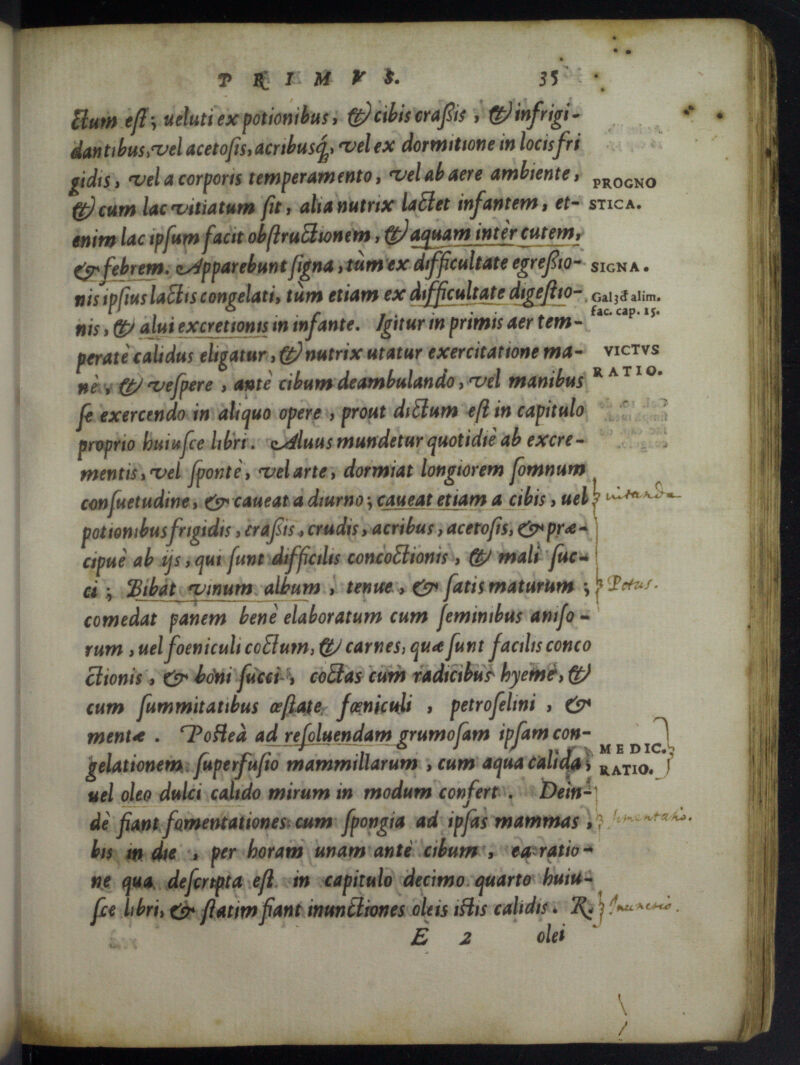 PRIMVS. 35
ctum est; ueluti ex potionibus, & cibis craßis, & infrigi-
dantibus, vel acetosis, acribusq;, vel ex dormitione in locis fri
gidis, vel a corporis temperamento, vel ab aere ambiente,
PROGNO
& cum lac vitiatum sit, alia nutrix lactet infantem, et-
STICA.
enim lac ipsum facit obstructionem, & aquam intèr cutem,
& febrem. Apparebunt signa, tùm ex difficultate egreßio-
SIGNA.
nis ipsius lactis congelati, tùm etiam ex difficultate digestio-
Gal; 3 alim.
nis, & alui excretionis in infante. Igitur in primis aer tem-
fac. cap. 15.
peratè calidus eligatur, & nutrix utatur exercitatione ma-
VICTVS
nè, & vespere, antè cibum deambulando, vel manibus
RATIO.
se exercendo in aliquo opere, prout dictum est in capitulo
proprio huiusce libri. Aluus mundetur quotidiè ab excre-
mentis, vel spontè, vel arte, dormiat longiorem somnum
consuetudine, & caueat a diurno; caueat etiam a cibis, uel
uitanda
potionibus frigidis, craßis, crudis, acribus, acetosis, & præ-
cipuè ab ijs, qui sunt difficilis concoctionis, & mali suc-
ci; Bibat vinum album, tenue, & satis maturum;
Potus.
comedat panem benè elaboratum cum seminibus aniso-
rum, uel foeniculi coctum, & carnes, quæ sunt facilis conco
ctionis, & boni succi, coctas cùm radicibus hyeme, &
cum summitatibus æstate, fœniculi, petroselini, &
mentæ. Posteà ad resoluendam grumosam ipsam con-
MEDIC.
gelationem superfusio mammillarum, cum aqua calida,
RATIO.
uel oleo dulci calido mirum in modum confert. Dein-
dè fiant fomentationes cum spongia ad ipsas mammas,
fomentatio.
bis in die, per horam unam antè cibum, ea ratio-
ne qua descripta est in capitulo decimo quarto huiu-
sce libri, & statim fiant inunctiones oleis istis calidis. ℞.
Inunctio.
E 2 olei